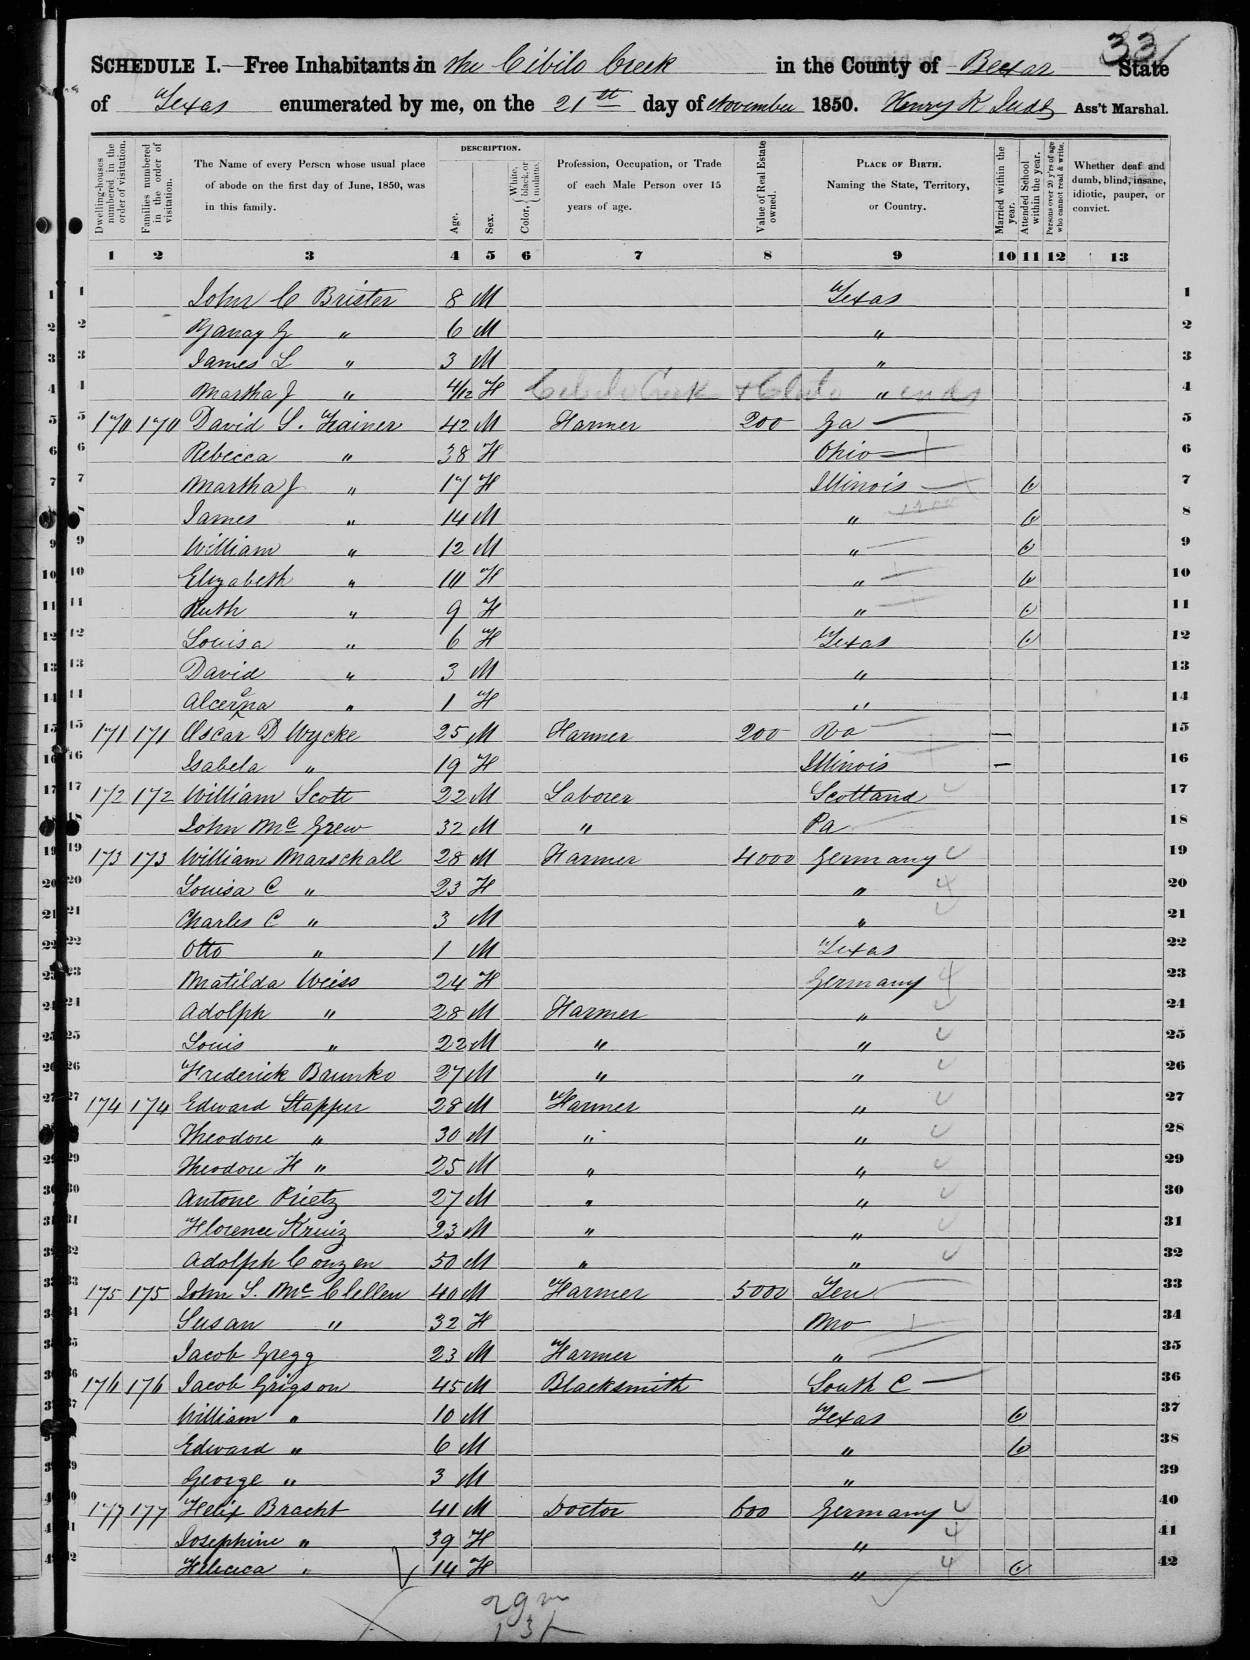 331
SCHEDULE I.—Free Inhabitants in the Cibilo Creek in the County of Bexar State
of Texas enumerated by me, on the 21th day of November 1850. Henry K Judd Ass't Marshal.
Dwelling-houses numbered in the order of visitation.
Families numbered in the order of visitation.
The Name of every Person whose usual place of abode on the first day of June, 1850, was in this family.
DESCRIPTION.
Age.
Sex.
Color, { White, black, or mulatto.
Profession, Occupation, or Trade of each Male Person over 15 years of age.
Value of Real Estate owned.
PLACE OF BIRTH. Naming the State, Territory, or Country.
Married within the year.
Attended School within the year.
Persons over 20 y'rs of age who cannot read & write.
Whether deaf and dumb, blind, insane, idiotic, pauper, or convict.
1 2 3 4 5 6 7 8 9 10 11 12 13
1 John C Brister 8 M Texas 1
2 " 6 M " 2
3 James L " 3 M " 3
4 Martha J " 4/12 F Cibilo Creek " ends 4
5 170 170 David S. Trainer 42 M Farmer 200 Ga 5
6 Rebecca " 38 F Ohio 6
7 Martha J " 17 F Illinois 1 7
8 James " 14 M " 1 8
9 William " 12 M " 1 9
10 Elizabeth " 10 F " 1 10
11 Ruth " 9 F " 1 11
12 Louisa " 6 F Texas 1 12
13 David " 3 M " 13
14 " 1 F " 14
15 171 171 Oscar D Wycke 25 M Farmer 200 Va — 15
16 Isabela " 19 F Illinois — 16
17 172 172 William Scott 22 M Laborer Scotland 17
18 John McGrew 32 M " Pa 18
19 173 173 William Marschall 28 M Farmer 4000 Germany 19
20 Louisa C " 23 F " 20
21 Charles C " 3 M " 21
22 Otto " 1 M Texas 22
23 Matilda Weiss 24 F Germany 23
24 Adolph " 28 M Farmer " 24
25 Louis " 22 M " " 25
26 Frederick Brunko 27 M " " 26
27 174 174 Edward Stapper 28 M Farmer " 27
28 Theodore " 30 M " " 28
29 Theodore H " 25 M " " 29
30 Antone Rietz 27 M " " 30
31 Florence Kruiz 23 M " " 31
32 Adolph Conzen 50 M " " 32
33 175 175 John S. McClellen 40 M Farmer 5000 Ten 33
34 Susan " 32 F Mo 34
35 Jacob Gregg 23 M Farmer " 35
36 176 176 Jacob Grigson 45 M Blacksmith South C 36
37 William " 10 M Texas 1 37
38 Edward " 6 M " 1 38
39 George " 3 M " 39
40 177 177 Felix Bracht 41 M Doctor 600 Germany 40
41 Josephine " 39 F " 41
42 " 14 F " 1 42
29 m
13 f